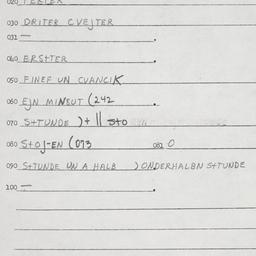 030 DRITER CVEJTER
031 —
040 ERSHTER
050 FINEF UN CVANCIK
060 EJN MINEUT (242
070 SHTUNDE )+ ||
080 SHOJ-EN (073 081 0
090 SHTUNDE UN A HALB ) ONDERHALBN SHTUNDE
100 —